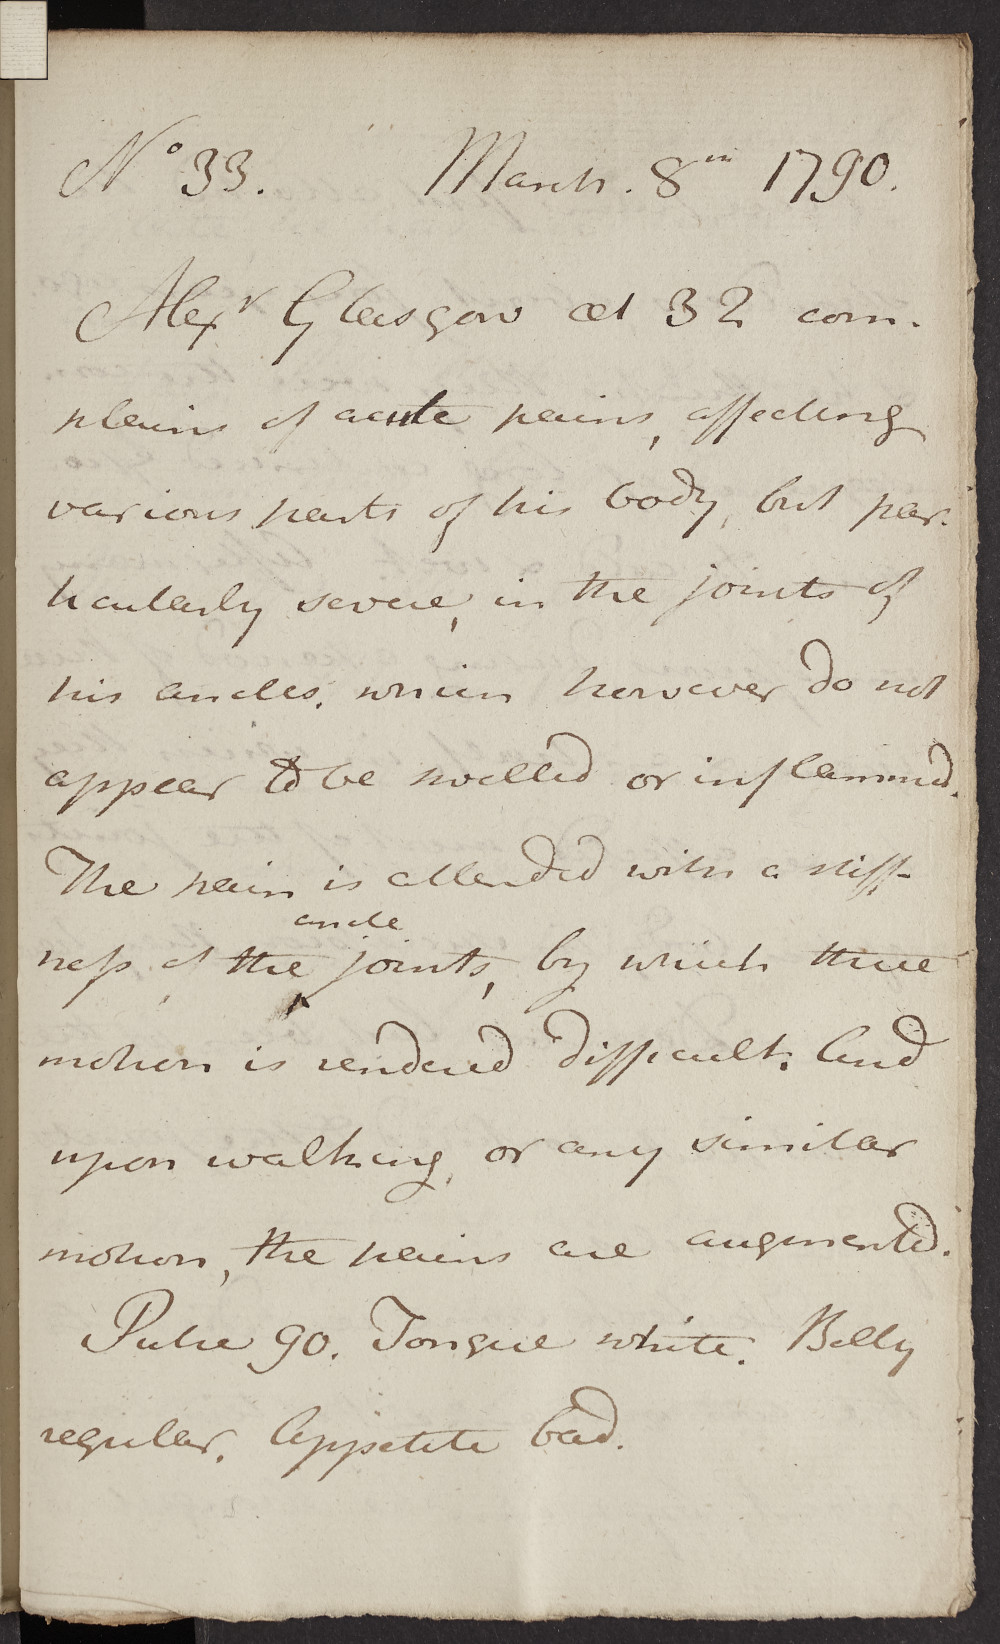 No 33. March. 8th 1790.
Alexr Glasgow æt 32 com-
plains of acute pains, affecting
various parts of his body, but par-
ticularly severe, in the joints of
his ancles, which however do not
appear to be swelled or inflammed.
The pain is attended with a stiff-
ness, of the ancle joints, by which three
motion is rendered difficult. And
upon walking, or any similar
motion, the pains are augmented.
Pulse 90. Tongue white. Belly
regular. Appetite bad.